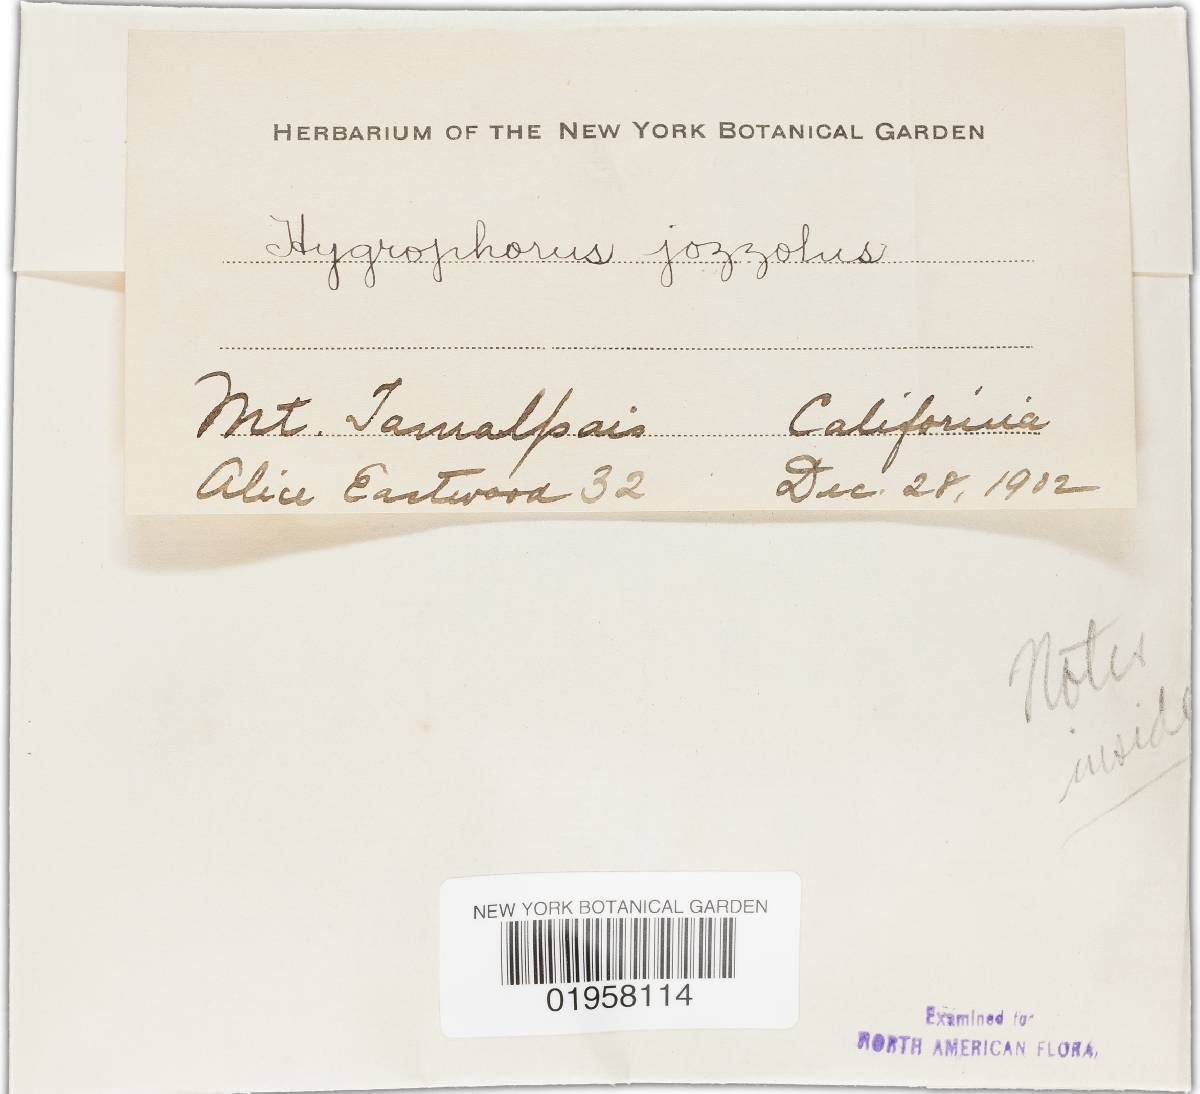 HERBARIUM OF THE NEW YORK BOTANICAL GARDEN
Hygrophorus jozzolus
Mt. Tamalpais California
Alice Eastwood 32 Dec. 28, 1902
Notes
inside
NEW YORK BOTANICAL GARDEN
01958114
Examined for
NORTH AMERICAN FLORA,